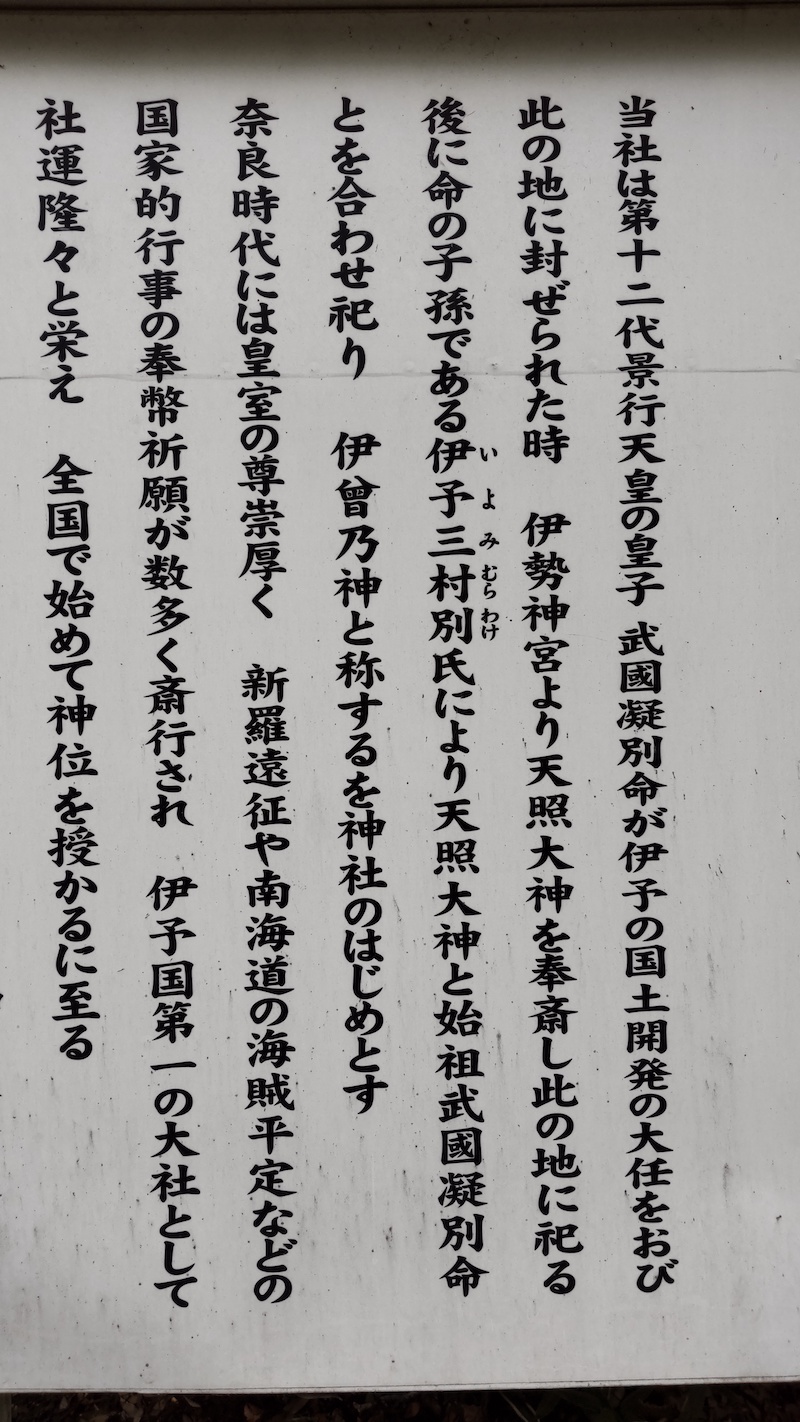 当社は第十二代景行天皇の皇子 武國凝別命が伊予の国土開発の大任をおび
此の地に封ぜられた時　伊勢神宮より天照大神を奉斎し此の地に祀る
後に命の子孫である伊予三村別氏により天照大神と始祖武國凝別命
いよみむらわけ
とを合わせ祀り　伊曽乃神と称するを神社のはじめとす
奈良時代には皇室の尊崇厚く　新羅遠征や南海道の海賊平定などの
国家的行事の奉幣祈願が数多く斎行され　伊予国第一の大社として
社運隆々と栄え　全国で始めて神位を授かるに至る